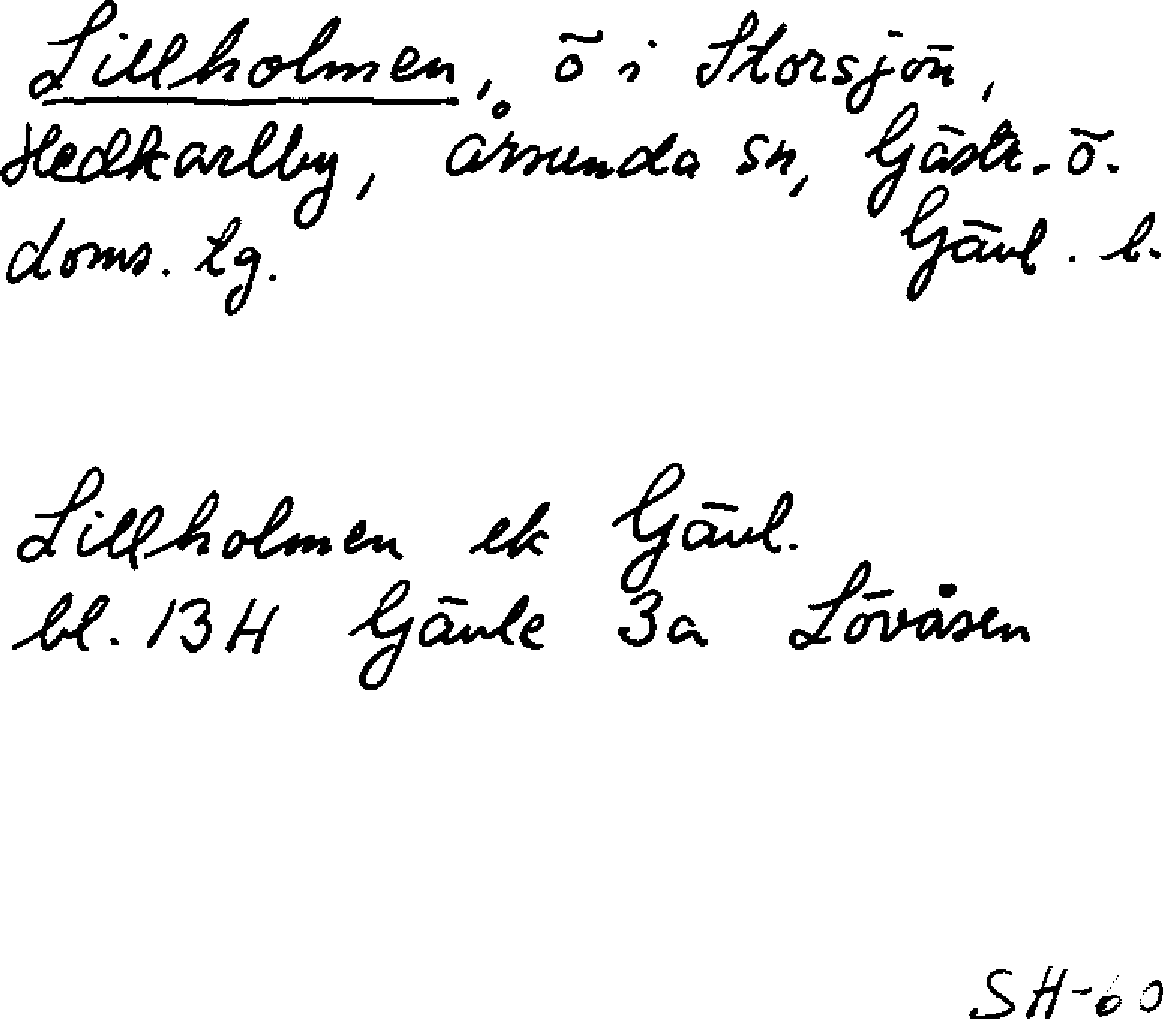 Lillholmen, ö i Storsjön,
Hedkarlby, Årsunda sn, Gästr. ö.
doms. tg. Gävl. l.
Lillholmen ek Gävl.
bl. 13H Gävle 3a Lövåsen
SH-60